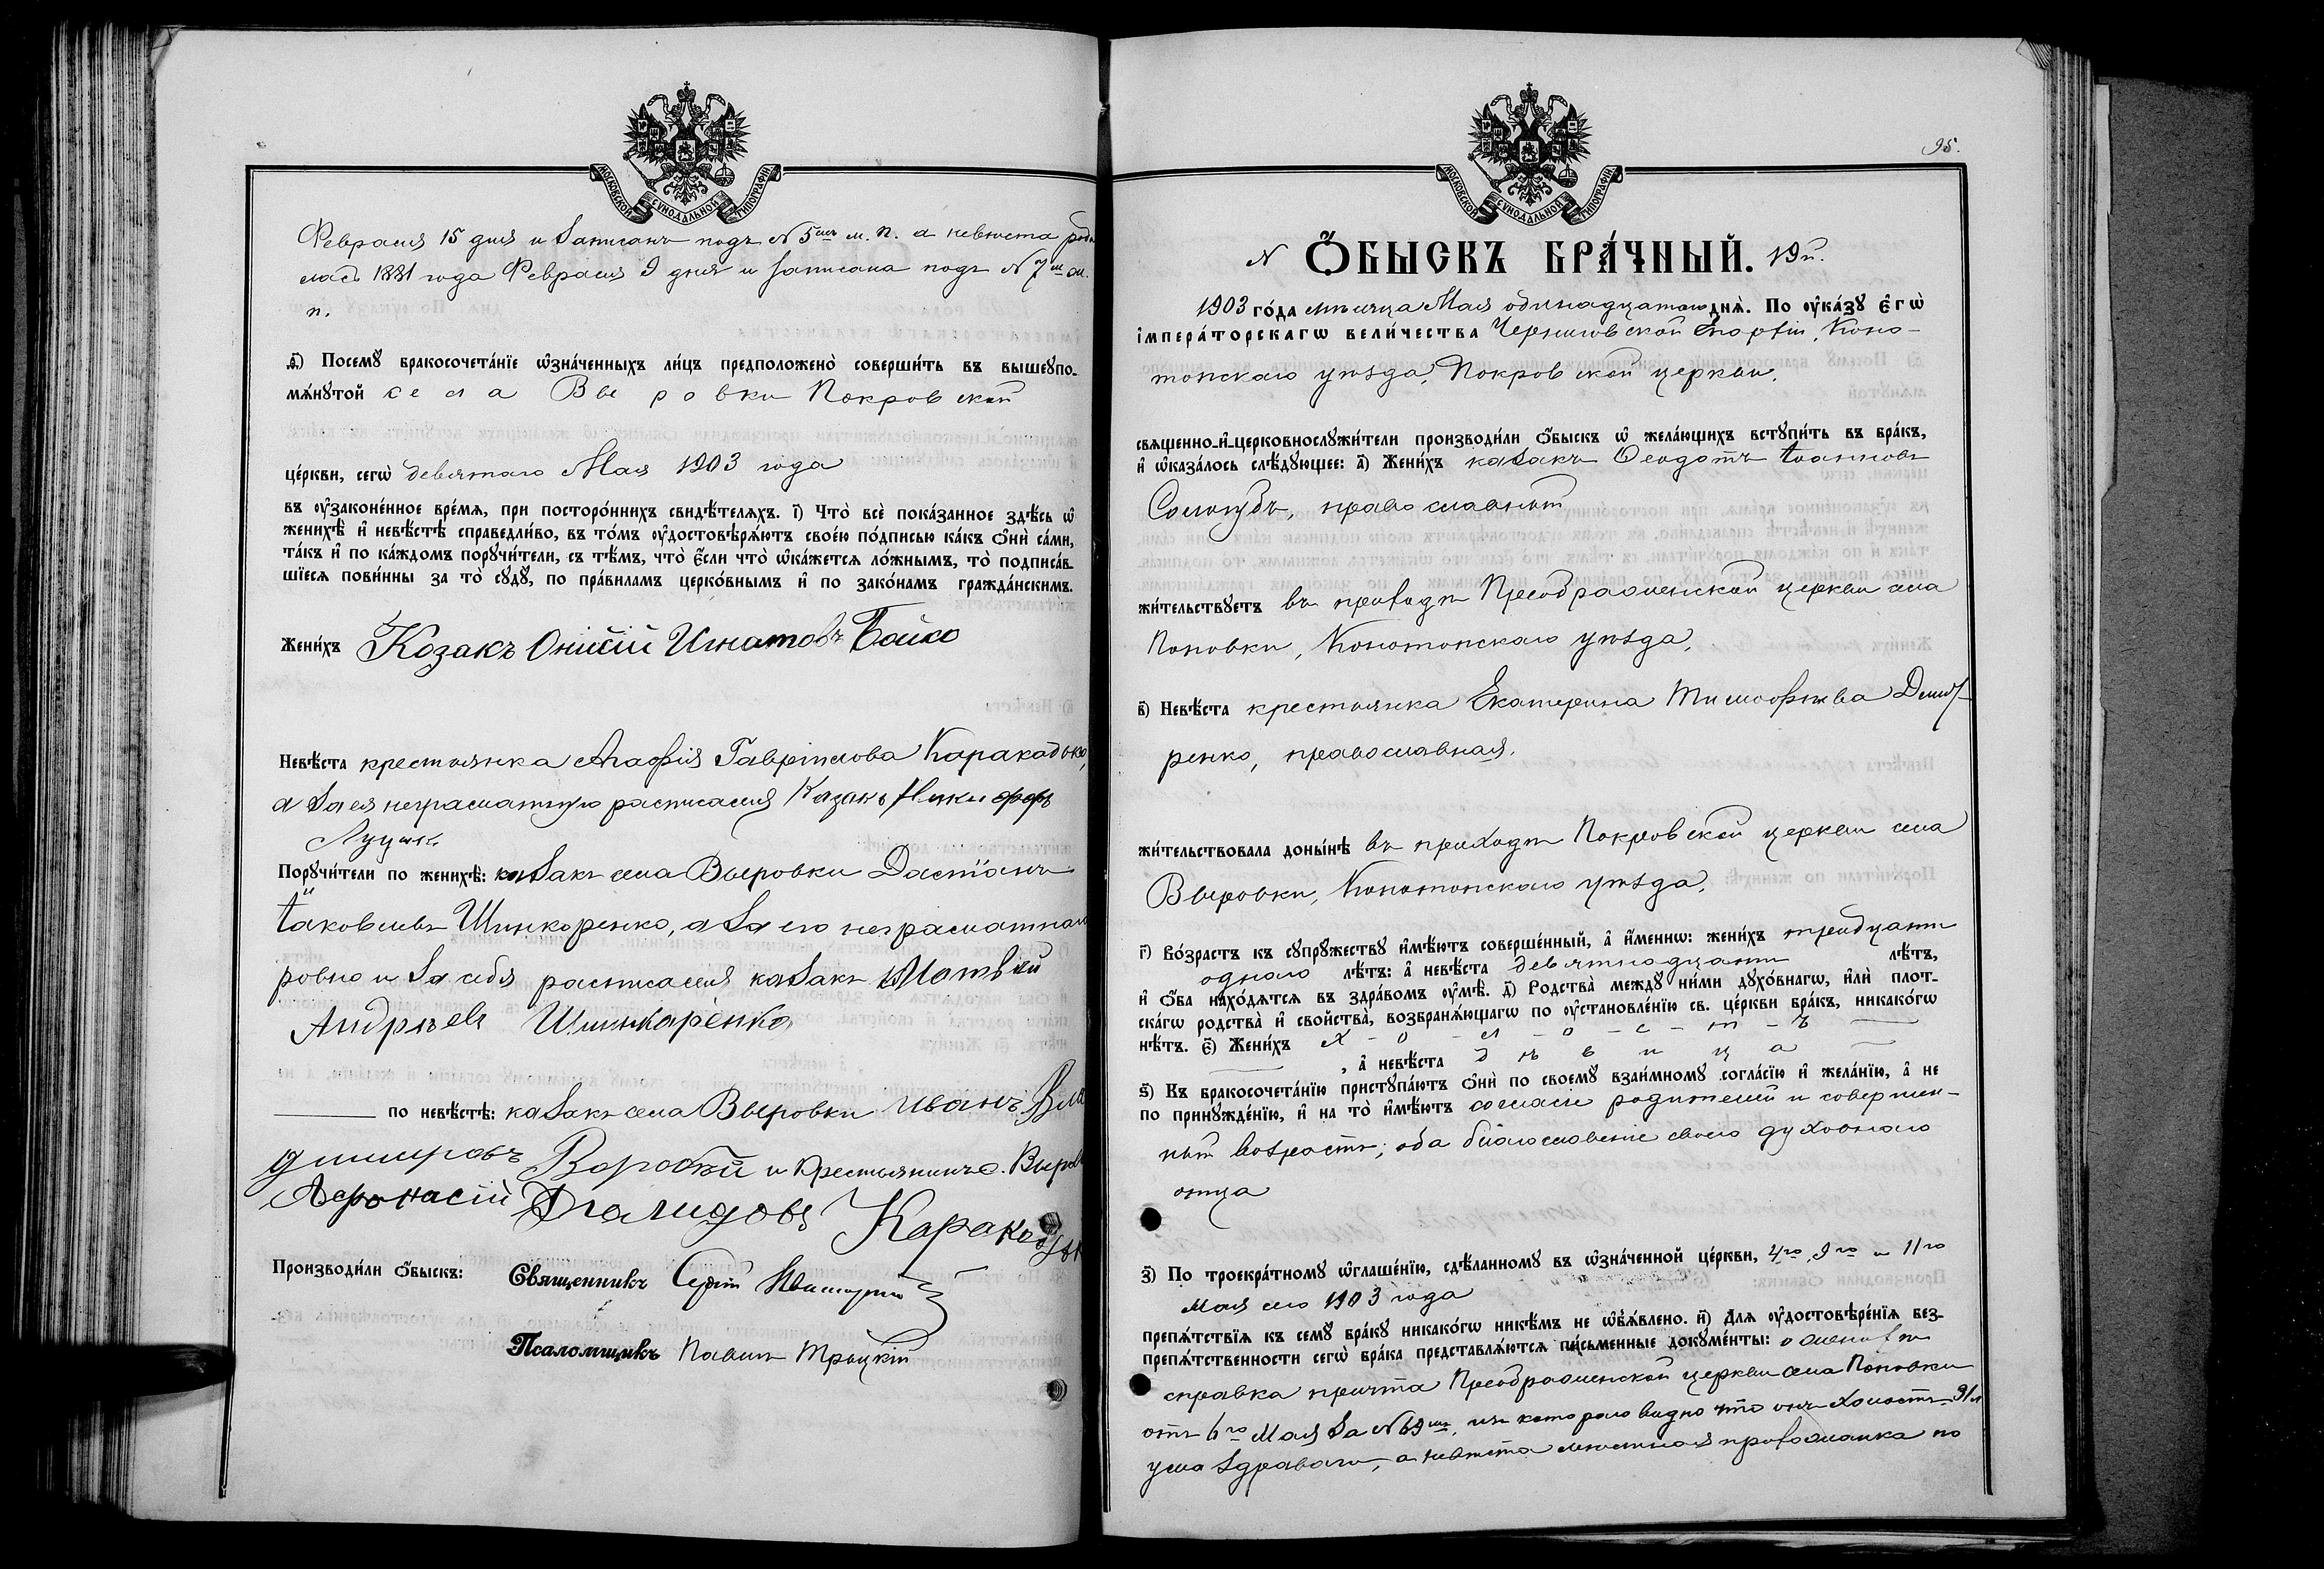 МОСКОВСКОЙ СѴНОДАЛЬНОЙ ТИПОГРАФІИ
Февраля 15 дня и записанъ подъ N 5мъ м. п. а невѣста роди
лась 1881 года Февраля 9 дня и записана подъ N 7 м.
п.
д҃і) Посемꙋ̀ бракосочета́нїе ѡ҆зна́ченныхъ ли́цъ предположено̀ соверши́ть въ вышеꙋпо-
мѧ́нꙋтой села Выровки Покровской
це́ркви, сегѡ̀ девятаго Мая 1903 года
въ ᲂу҆законе́нное вре́мѧ, при посторо́ннихъ свидѣ́телѧхъ. і҃) Что̀ всѐ пока́занное здѣ́сь ѡ҆
женихѣ̀ и҆ невѣ́стѣ справедли́во, въ то́мъ ᲂу҆достовѣрѧ́ютъ свое́ю по́дписью ка́къ ѻ҆нѝ са́ми,
та́къ и҆ по ка́ждомъ порꙋчи́тели, съ тѣ́мъ, что̀ є҆́сли что̀ ѡ҆ка́жетсѧ ло́жнымъ, то̀ подписа́в-
шїесѧ пови́нны за то̀ сꙋдꙋ̀, по пра́виламъ церко́внымъ и҆ по зако́намъ гражда́нскимъ.
Жени́хъ Козакъ Онисій Игнатовъ Бойко
Невѣ́ста крестьянка Агафія Гавріилова
а за ея неграматную расписался Казакъ Никифоръ
Порꙋчи́тели по женихѣ̀: казакъ села Выровки
Іаковлевъ Шинкаренко, а за его неграматнаго
ровно и за себя расписался казакъ Матвій
Андрѣевъ Шинкаренко
по невѣ́стѣ: казакъ села Выровки Иванъ Вла
димировъ Воробей и крестьянинъ с. Выров
Афонасій Давидовъ
Производи́ли ѻ҆́быскъ: Священникъ
Псаломщикъ Павелъ Троцкій
95.
МОСКОВСКОЙ СѴНОДАЛЬНОЙ ТИПОГРАФІИ
N Ѻ҆́БЫСКЪ БРА́ЧНЫЙ. 19й.
1903 го́да мѣсяца Мая одинадцатаго днѧ̀. По ᲂу҆ка́зꙋ є҆гѡ̀
і҆мпера́торскагѡ вели́чества Черниговской Епархіи, Коно-
топскаго уѣзда, Покровской церкви,
свѧщенно-и҆-церковнослꙋжи́тели производи́ли ѻ҆́быскъ ѡ҆ жела́ющихъ встꙋпи́ть въ бра́къ,
и҆ ѡ҆каза́лось слѣ́дꙋющее: а҃) Жени́хъ казакъ Ѳеодотъ Іоанновъ
Сологубъ, православный
жи́тельствꙋетъ въ приходѣ Преображенской церкви села
Поповки, Конотопскаго уѣзда,
в҃) Невѣ́ста крестьянка Екатерина Тимоофѣева
ренко, православная.
жи́тельствовала доны́нѣ въ приходѣ Покровской церкви села
Выровки, Конотопскаго уѣзда,
г҃) Во́зрастъ къ сꙋпрꙋ́жествꙋ и҆мѣ́ютъ соверше́нный, а҆ и҆́меннѡ: жени́хъ тридцати
одного лѣ́тъ: а҆ невѣ́ста девятнадцати лѣ́тъ,
и҆ ѻ҆́ба нахо́дѧтсѧ въ здра́вомъ ᲂу҆мѣ̀. д҃) Родства̀ междꙋ ни́ми дꙋхо́внагѡ, и҆лѝ плот-
ска́гѡ родства̀ и҆ свойства̀, возбранѧ́ющагѡ по ᲂу҆становле́нїю св. це́ркви бра́къ, никако́гѡ
нѣ́тъ. є҃) Жени́хъ х-о-л-о-с-т-ъ
, а҆ невѣ́ста д ѣ в и ц а
ѕ҃) Къ бракосочета́нїю пристꙋпа́ютъ ѻ҆нѝ по своемꙋ̀ взаи́мномꙋ согла́сїю и҆ жела́нїю, а҆ не
по принꙋжде́нїю, и҆ на то̀ и҆мѣ́ютъ согласіе родителей и совершен-
ный возрастъ; оба благословеніе своего духовнаго
отца
з҃) По троекра́тномꙋ ѡ҆глаше́нїю, сдѣ́ланномꙋ въ ѡ҆зна́ченной це́ркви, 4го, 9го и 11го
Мая сего 1903 года
препѧ́тствїѧ къ семꙋ̀ бра́кꙋ никако́гѡ никѣ́мъ не ѡ҆б̾ѧ́влено. и҃) Для ᲂу҆достовѣре́нїѧ без-
препѧ́тственности сегѡ̀ бра́ка представлѧ́ютсѧ пи́сьменные докꙋме́нты: о женихѣ
справка причта Преображенской церкви села Поповки
отъ 6го Мая за N 69мъ, изъ котораго видно что онъ холостъ 31 л
ума здраваго, а невѣста мѣстная прихожанка по